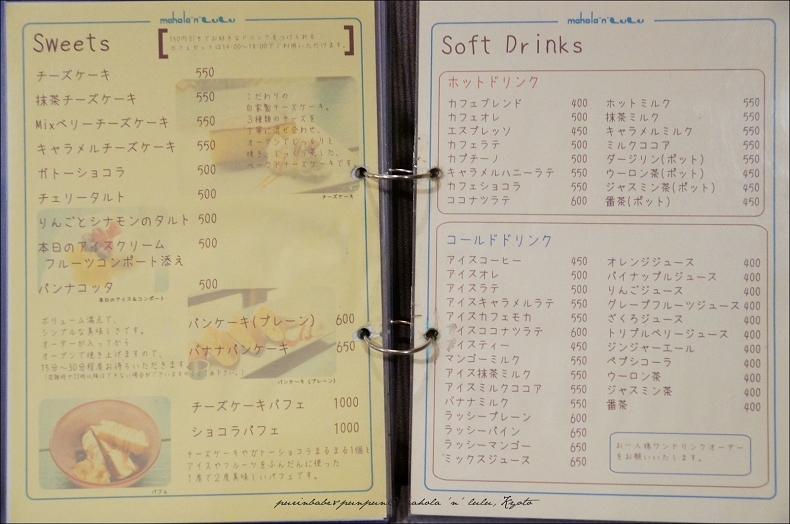 mahala'n'luLu
Sweets
150円引きでお好きなドリンクをつけられる
カフェセットは14:00~18:00でご利用いただけます。
チーズケーキ 550
抹茶チーズケーキ 550
Mixベリーチーズケーキ 550
キャラメルチーズケーキ 550
ガトーショコラ 500
チェリータルト 500
りんごとシナモンのタルト 500
本日のアイスクリーム 500
フルーツコンポート添え
パンナコッタ 500
こだわりの
自家製チーズケーキ。
3種類のチーズを
丁寧に混ぜ合わせ、
オーブンでじっくりと
チーズケーキ
本日のアイス&コンポート
ボリューム満点で、
シンプルな美味しさです。
オーダーが入ってから
オーブンで焼き上げますので、
15分~30分程度お待ちいただきます。
パンケーキ(プレーン) 600
バナナパンケーキ 650
パンケーキ(プレーン)
チーズケーキパフェ 1000
ショコラパフェ 1000
チーズケーキやガトーショコラまるまる1個と
アイスやフルーツをふんだんに使った
1度で2度美味しいパフェです。
パフェ
mahala'n'luLu
Soft Drinks
ホットドリンク
カフェブレンド 400
カフェオレ 500
エスプレッソ 450
カフェラテ 550
カプチーノ 550
キャラメルハニーラテ 550
カフェショコラ 550
ココナツラテ 600
ホットミルク 550
抹茶ミルク 550
キャラメルミルク 550
ミルクココア 550
ダージリン(ポット) 550
ウーロン茶(ポット) 450
ジャスミン茶(ポット) 450
番茶(ポット) 450
コールドドリンク
アイスコーヒー 450
アイスオレ 500
アイスラテ 550
アイスキャラメルラテ 550
アイスカフェモカ 550
アイスココナツラテ 600
アイスティー 450
マンゴーミルク 550
アイス抹茶ミルク 550
アイスミルクココア 550
バナナミルク 550
ラッシープレーン 600
ラッシーパイン 650
ラッシーマンゴー 650
ミックスジュース 650
オレンジジュース 400
パイナップルジュース 400
りんごジュース 400
グレープフルーツジュース 400
ざくろジュース 400
トリプルベリージュース 400
ジンジャーエール 400
ペプシコーラ 400
ウーロン茶 400
ジャスミン茶 400
番茶 400
お一人様ワンドリンクオーダー
をお願いいたします。
purinbabe&punpun@mahola 'n' lulu, Kyoto